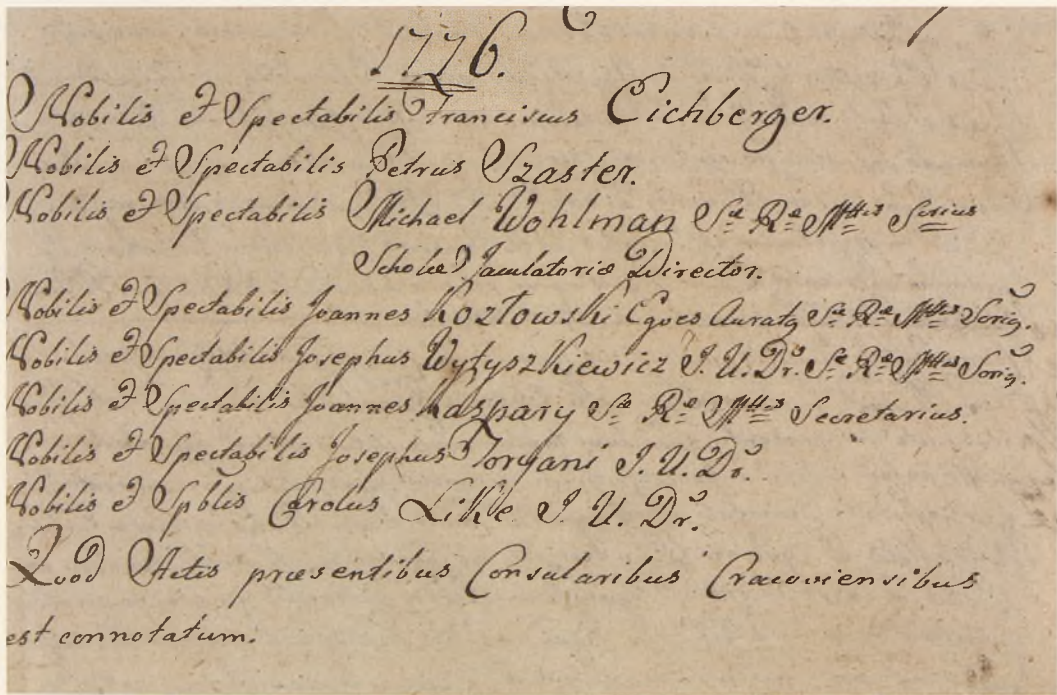 1776.
Nobilis et Spectabilis Franciscus Eichberger.
Nobilis et Spectabilis Petrus Szaster.
Nobilis et Spectabilis Michael Wohlman Sæ Ræ Mttis Srius
Scholæ Jaculatoriæ Director.
Nobilis et Spectabilis Joannes Kozłowski Eques Aurat9 Sæ Ræ Mttis
Nobilis et Spectabilis Josephus Wytyszkiewicz J. U. Dr. Sæ Ræ Mttis
Nobilis et Spectabilis Joannes Kaspary Sæ Ræ Mttis Secretarius.
Nobilis et Spectabilis Josephus Toryani J. U. Dr.
Nobilis et Spblis Carolus Like J. U. Dr.
Quod Actis præsentibus Consularibus Cracoviensibus
est connotatum.